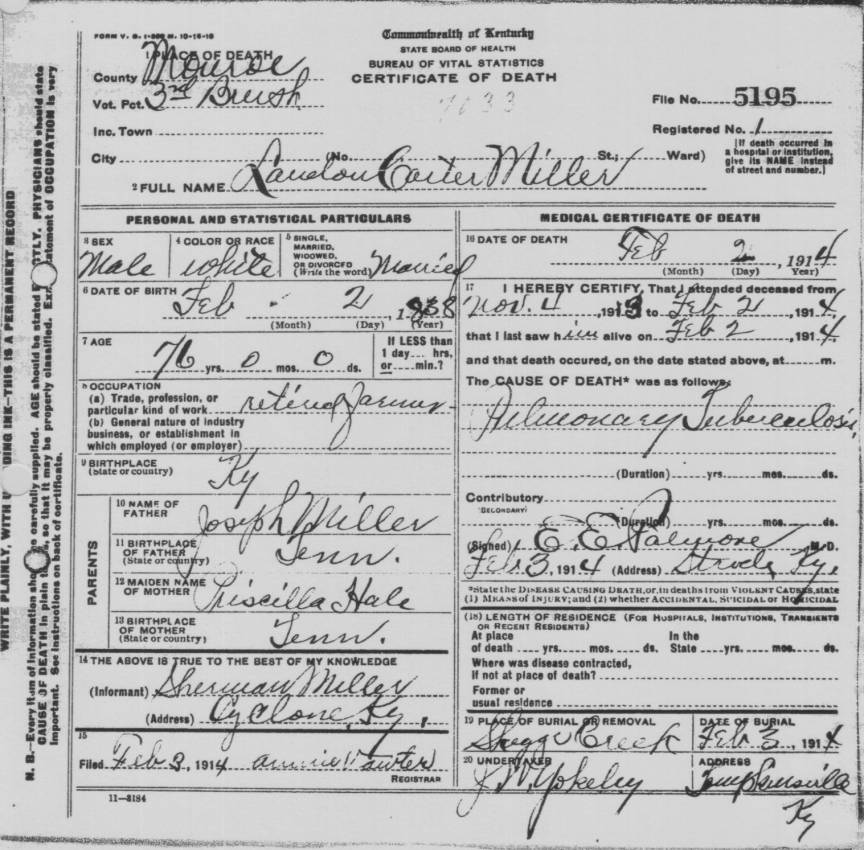 FORM V. S. 1-200 M. 10-16-10
Commonwealth of Kentucky
STATE BOARD OF HEALTH
BUREAU OF VITAL STATISTICS
CERTIFICATE OF DEATH
1 PLACE OF DEATH
County Monroe
Vot. Pct. 3rd Brush
7633
File No. 5195
Inc. Town
Registered No. 1
City (No. St.; Ward)
(If death occurred in a hospital or institution, give its NAME instead of street and number.)
2 FULL NAME Landon Carter Miller
PERSONAL AND STATISTICAL PARTICULARS
3 SEX Male
4 COLOR OR RACE white
5 SINGLE, MARRIED, WIDOWED, OR DIVORCED (Write the word) Married
6 DATE OF BIRTH Feb 2, 1838
(Month) (Day) (Year)
7 AGE 76 yrs. 0 mos. 0 ds.
If LESS than 1 day.... hrs. or.... min.?
8 OCCUPATION
(a) Trade, profession, or particular kind of work retired farmer
(b) General nature of industry business, or establishment in which employed (or employer)
9 BIRTHPLACE (State or country) Ky
PARENTS
10 NAME OF FATHER Joseph Miller
11 BIRTHPLACE OF FATHER (State or country) Tenn.
12 MAIDEN NAME OF MOTHER Priscilla Hale
13 BIRTHPLACE OF MOTHER (State or country) Tenn.
14 THE ABOVE IS TRUE TO THE BEST OF MY KNOWLEDGE
(Informant) Sherman Miller
(Address) Cyclone, Ky,
15
Filed Feb 3, 1914 Annie Vawter
REGISTRAR
11-3184
MEDICAL CERTIFICATE OF DEATH
16 DATE OF DEATH Feb 2, 1914
(Month) (Day) Year)
17 I HEREBY CERTIFY, That I attended deceased from
Nov. 4, 1913 to Feb 2, 1914
that I last saw him alive on Feb 2, 1914
and that death occured, on the date stated above, at m.
The CAUSE OF DEATH* was as follows:
Pulmonary Tuberculosis,
(Duration) yrs. mos. ds.
Contributory
(SECONDARY)
(Duration) yrs. mos. ds.
(Signed) E. E. Palmore M.D.
Feb 3, 1914 (Address) Strode, Ky,
*State the DISEASE CAUSING DEATH, or, in deaths from VIOLENT CAUSES, state
(1) MEANS of INJURY; and (2) whether ACCIDENTAL, SUICIDAL or HOMICIDAL
(18) LENGTH OF RESIDENCE (FOR HOSPITALS, INSTITUTIONS, TRANSIENTS OR RECENT RESIDENTS)
At place of death yrs. mos. ds.
In the State yrs. mos. ds.
Where was disease contracted,
If not at place of death?
Former or
usual residence
19 PLACE OF BURIAL OR REMOVAL Skeggs Creek
DATE OF BURIAL Feb 3, 1914
20 UNDERTAKER J. W. Yokeley
ADDRESS Tompkinsville Ky